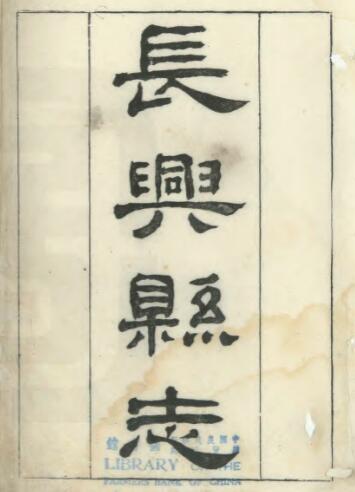 長興縣志
LIBRARY OF THE
FARMERS BANK OF CHINA